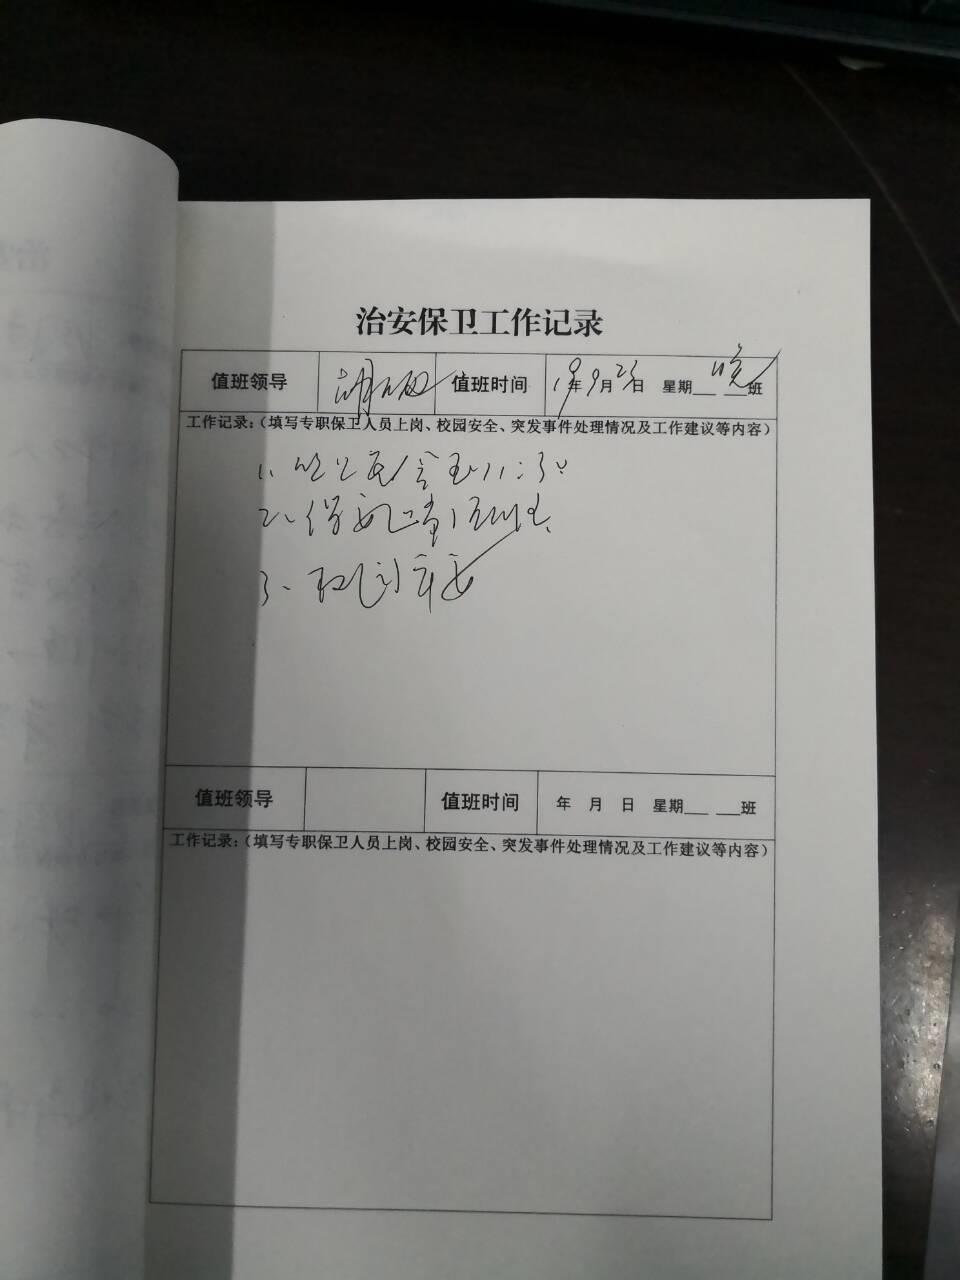 治安保卫工作记录
值班领导 胡 值班时间 19年9月23日 星期___ 晚班
工作记录：（填写专职保卫人员上岗、校园安全、突发事件处理情况及工作建议等内容）
1、
2、保安正常
3、校园平安
值班领导 值班时间 年 月 日 星期___ ___班
工作记录：（填写专职保卫人员上岗、校园安全、突发事件处理情况及工作建议等内容）